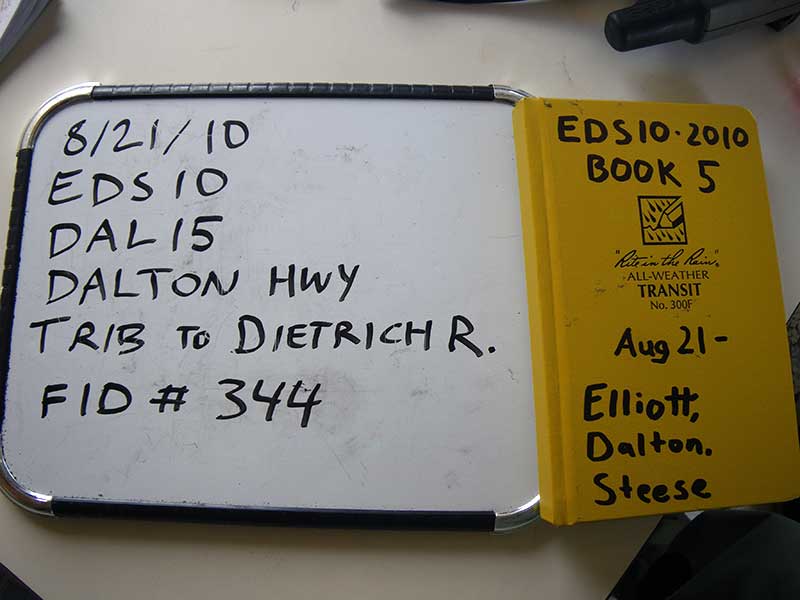 8/21/10
EDS10
DAL15
DALTON HWY
TRIB TO DIETRICH R.
FID # 344
EDS10·2010
BOOK 5
"Rite in the Rain"®
ALL-WEATHER
TRANSIT
No. 300F
Aug 21-
Elliott,
Dalton.
Steese